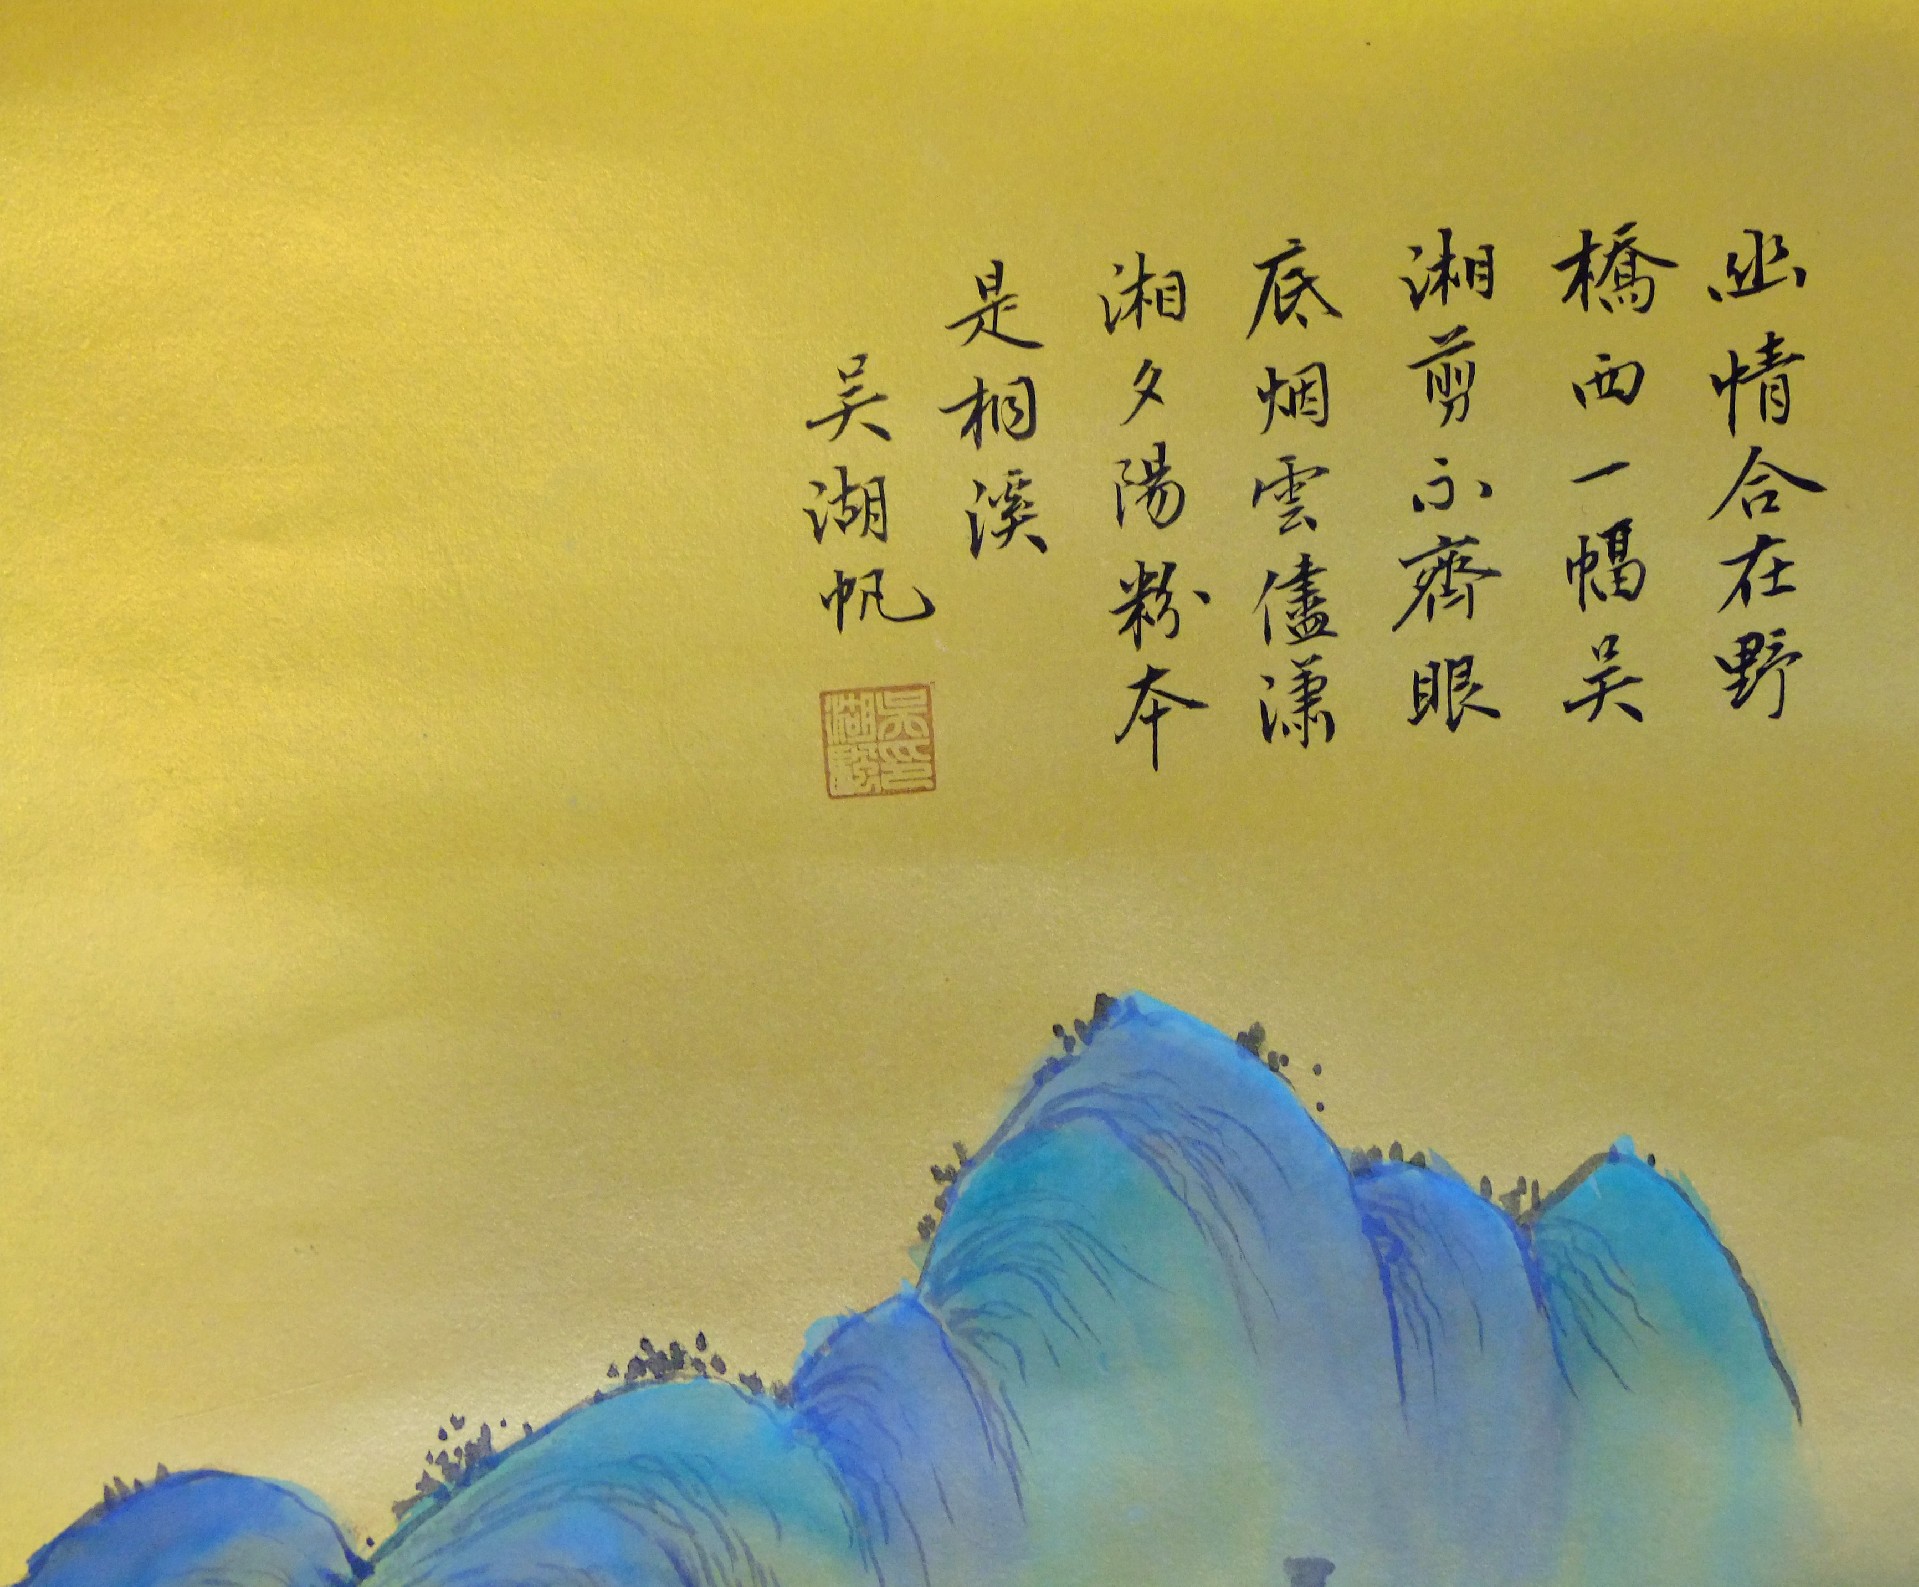 幽情合在野
橋西一幅吴
湘剪不齊眼
底烟雲儘潇
湘夕陽粉本
是桐溪
吴湖帆
吴湖颿印